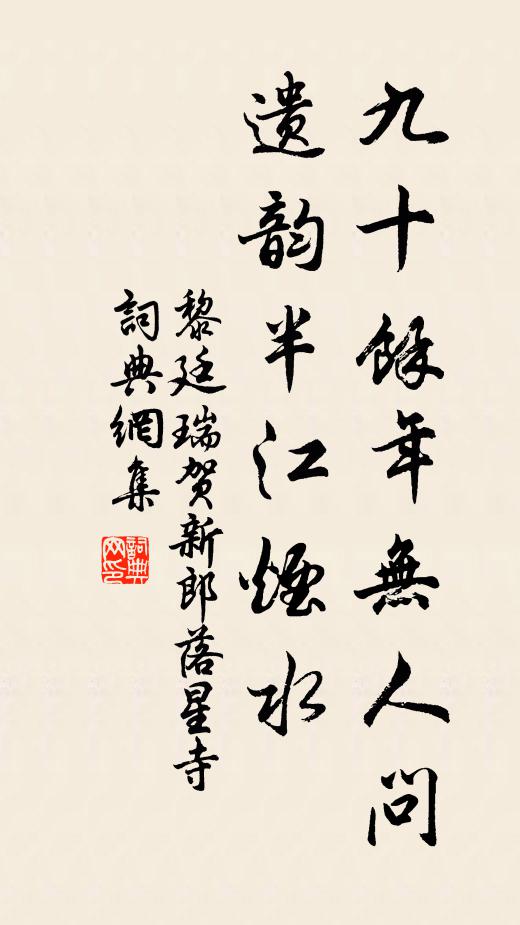 九十餘年無人問
遺韵半江煙水
黎廷瑞賀新郎落星寺
詞典網集
詞典網印